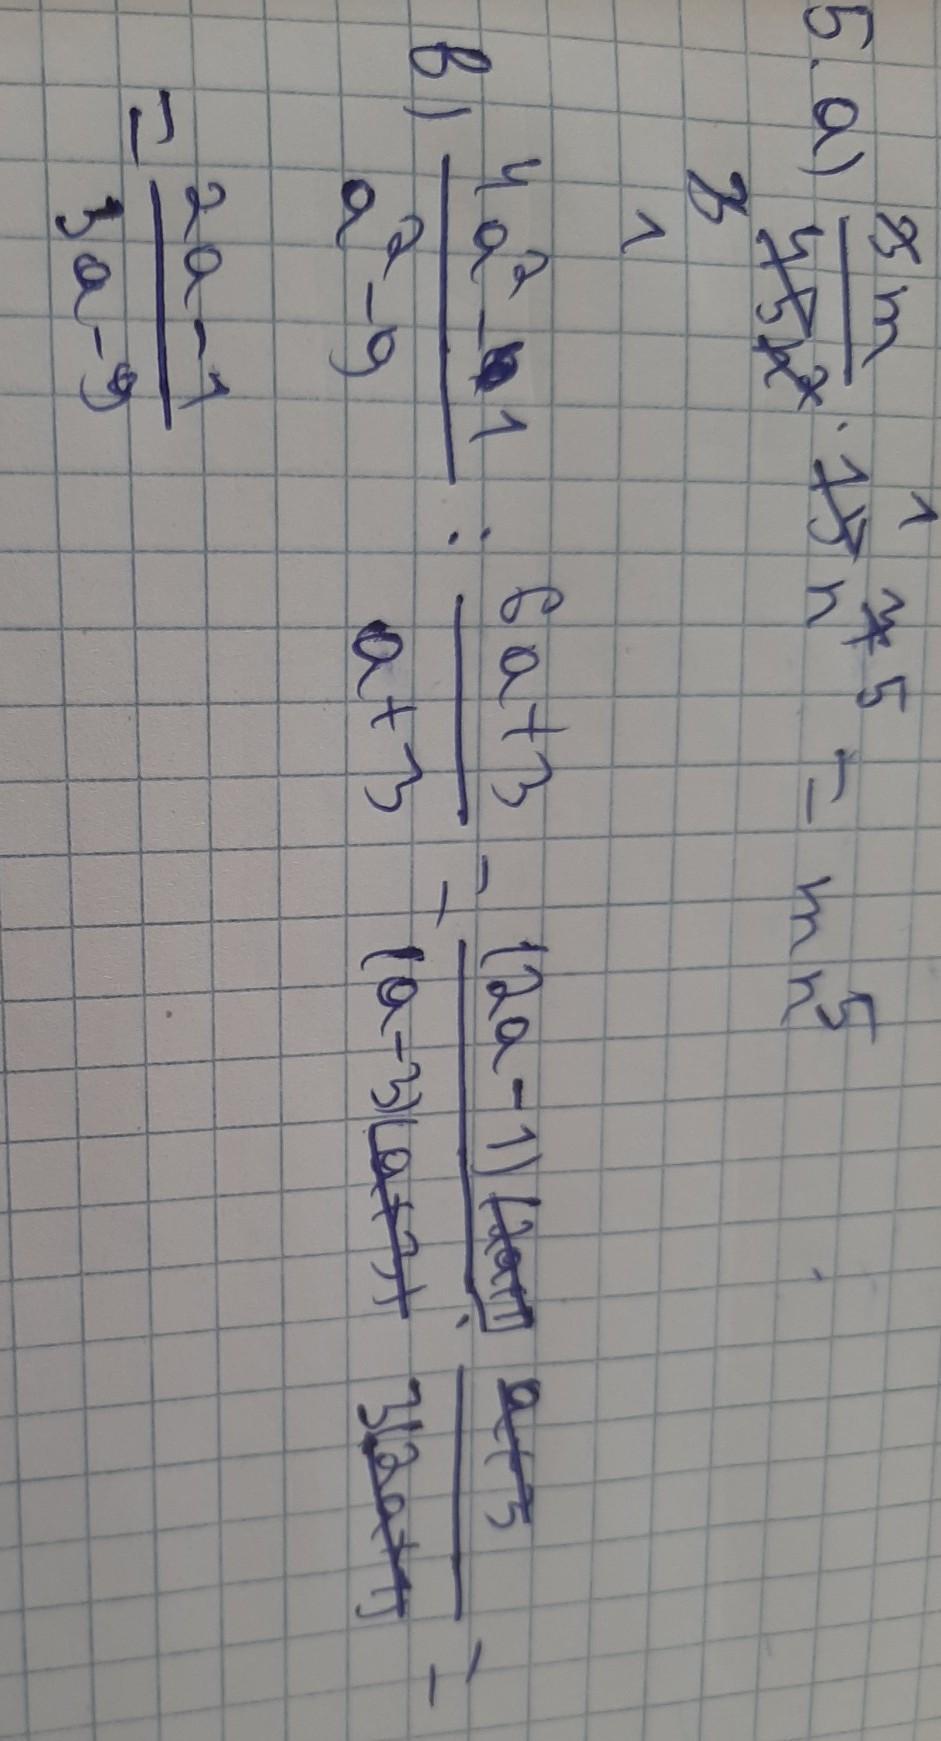 5. a) 3m/45n² · 15n⁷ ⁵ = mn⁵
1
3
1
в) 4a²-1/a²-9 : 6a+3/a+3 = (2a-1)(2a+1)/(a-3)(a+3) · a+3/3(2a+1) =
= 2a-1/3a-9